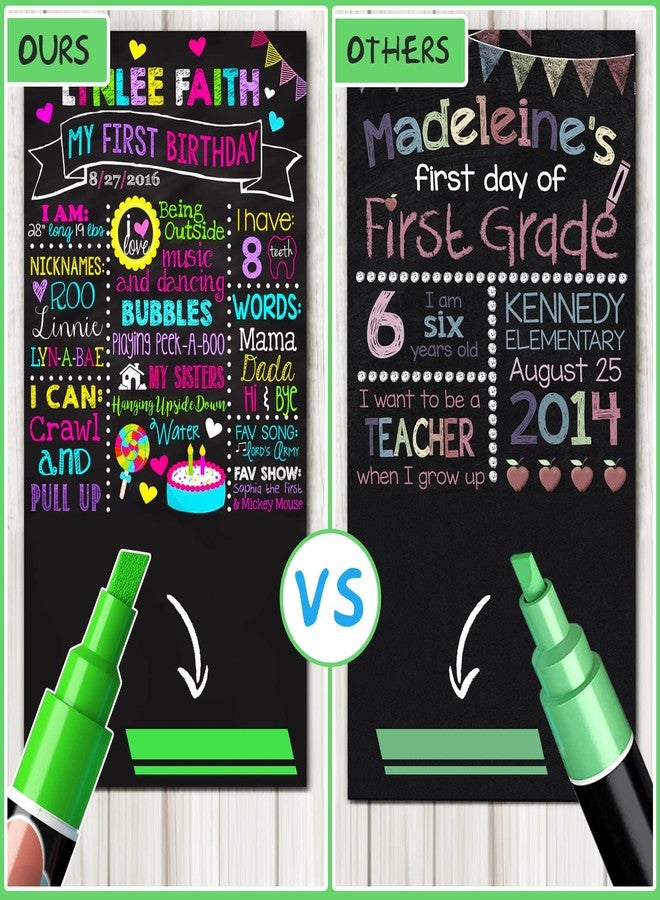 OURS
LYNLEE FAITH
MY FIRST BIRTHDAY
8/27/2016
I AM:
28" long 19 lbs
NICKNAMES:
ROO
Linnie
LYN-A-BAE
I CAN:
Crawl
AND
PULL UP
i
love
Being
Outside
music
and dancing
BUBBLES
Playing PEEK-A-BOO
MY SISTERS
Hanging Upside Down
Water
I have:
8 teeth
WORDS:
Mama
Dada
Hi & Bye
FAV SONG:
Lord's Army
FAV SHOW:
Sophia the First
& Mickey Mouse
VS
OTHERS
Madeleine's
first day of
First Grade
6 I am
six
years old
I want to be a
TEACHER
when I grow up
KENNEDY
ELEMENTARY
August 25
2014